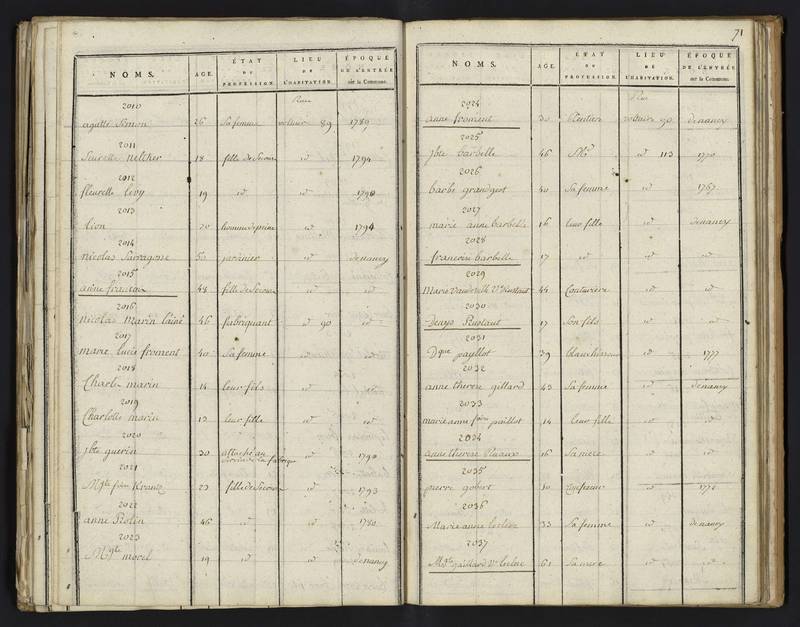 NOMS. AGE. ÉTAT OU PROFESSION. LIEU DE L'HABITATION. ÉPOQUE DE L'ENTRÉE sur la Commune.
Rue
2010
agatte Simon 26 Sa femme voltaire 89 1789
2011
18 fille de Secours id 1794
2012
fleurette levy 19 id id 1790
2013
lion 70 homme de peine id 1794
2014
nicolas Sarragosse 50 jardinier id de nancy
2015
anne 48 fille de Secours id id
2016
nicolas marin l'ainé 46 fabriquant id 90 id
2017
marie lucie froment 40 Sa femme id id
2018
Charle marin 14 leur fils id id
2019
Charlotte marin 13 leur fille id id
2020
jbte guerin 30 attaché au de la fabrique id 1790
2021
Mgte Krantz 23 fille de Secours id 1793
2022
anne 46 id id 1780
2023
Mgte morel 19 id id de nancy
71
NOMS. AGE. ÉTAT OU PROFESSION. LIEU DE L'HABITATION. ÉPOQUE DE L'ENTRÉE sur la Commune.
Rue
2024
anne froment 30 Rentiere voltaire 90 de nancy
2025
jbte barbelle 46 Md id 113 1770
2026
barbe grandgeot 40 Sa femme id 1767
2027
marie anne barbelle 16 leur fille id de nancy
2028
francois barbelle 17 id id id
2029
Marie Vaudeville Ve Rustaut 44 Couturiere id id
2030
Rustaut 17 Son fils id id
2031
Dque paillot 39 id 1777
2032
anne therese gillard 43 Sa femme id de nancy
2033
marie anne fçoise paillot 14 leur fille id id
2034
anne therese Ruaux 16 Sa niece id id
2035
pierre gobert id
2036
Marie anne 33 Sa femme id de nancy
2037
Mgte gaillard Ve 61 Sa mere id id